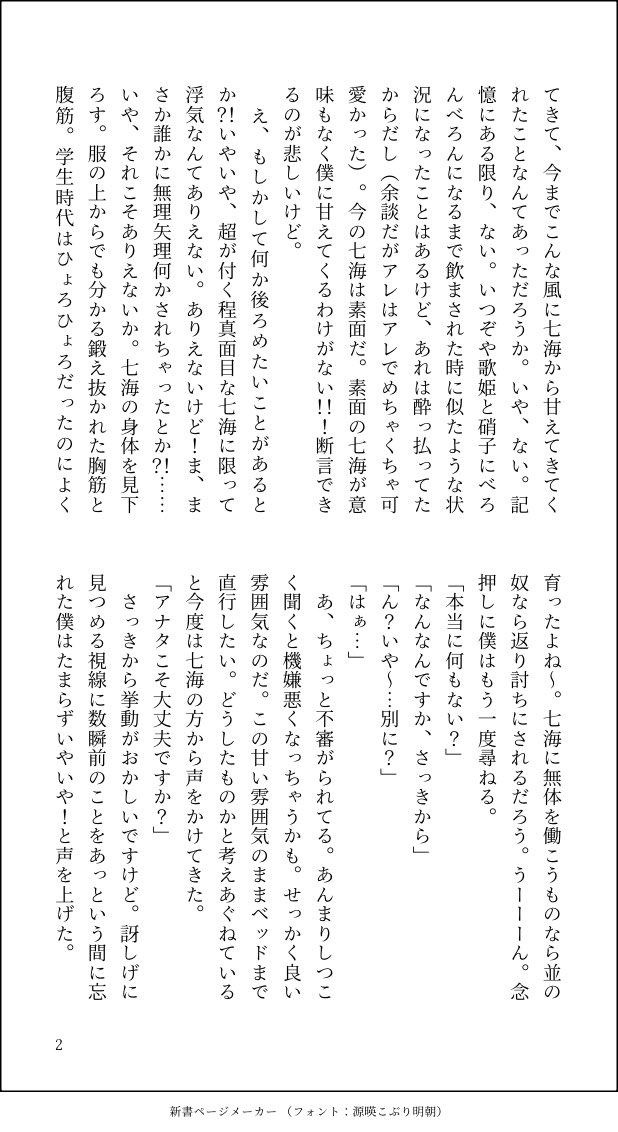 てきて、今までこんな風に七海から甘えてきてく
れたことなんてあっただろうか。いや、ない。記
憶にある限り、ない。いつぞや歌姫と硝子にべろ
んべろんになるまで飲まされた時に似たような状
況になったことはあるけど、あれは酔っ払ってた
からだし（余談だがアレはアレでめちゃくちゃ可
愛かった）。今の七海は素面だ。素面の七海が意
味もなく僕に甘えてくるわけがない!!！断言でき
るのが悲しいけど。
　え、もしかして何か後ろめたいことがあると
か?!いやいや、超が付く程真面目な七海に限って
浮気なんてありえない。ありえないけど！ま、ま
さか誰かに無理矢理何かされちゃったとか?!……
いや、それこそありえないか。七海の身体を見下
ろす。服の上からでも分かる鍛え抜かれた胸筋と
腹筋。学生時代はひょろひょろだったのによく
育ったよね〜。七海に無体を働こうものなら並の
奴なら返り討ちにされるだろう。うーーーん。念
押しに僕はもう一度尋ねる。
「本当に何もない？」
「なんなんですか、さっきから」
「ん？いや〜…別に？」
「はぁ…」
　あ、ちょっと不審がられてる。あんまりしつこ
く聞くと機嫌悪くなっちゃうかも。せっかく良い
雰囲気なのだ。この甘い雰囲気のままベッドまで
直行したい。どうしたものかと考えあぐねている
と今度は七海の方から声をかけてきた。
「アナタこそ大丈夫ですか？」
　さっきから挙動がおかしいですけど。訝しげに
見つめる視線に数瞬前のことをあっという間に忘
れた僕はたまらずいやいや！と声を上げた。
2
新書ページメーカー（フォント：源暎こぶり明朝）